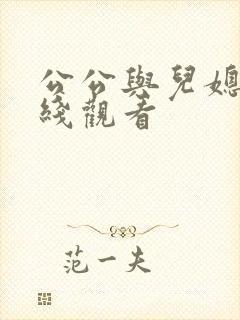 公公與兒媳
綫觀看
范一夫